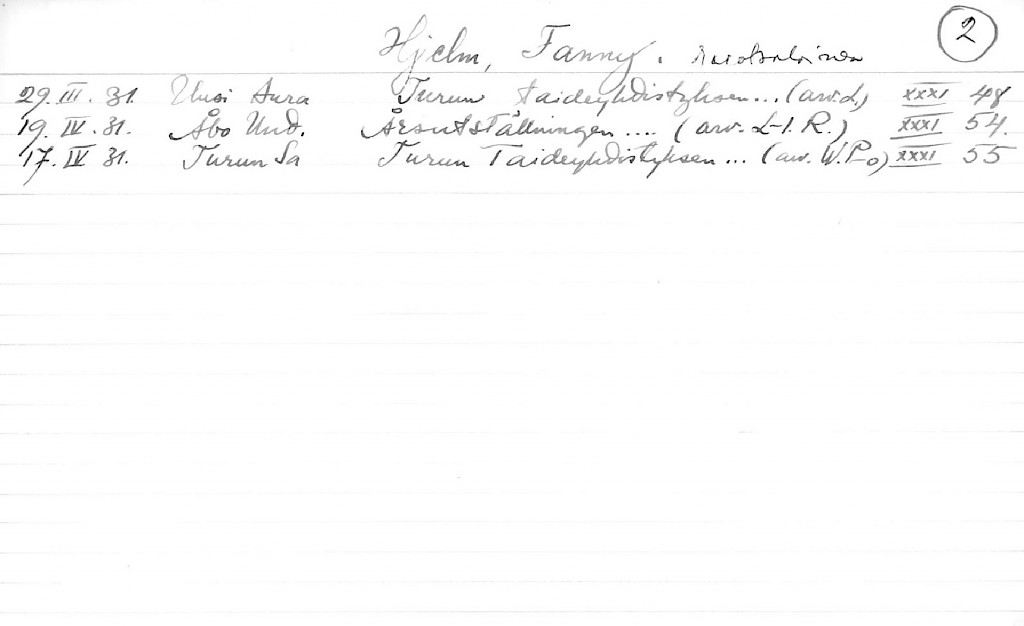 Hjelm, Fanny. ruotsalainen 2
29. III. 31. Uusi Aura Turun taideyhdistyksen... (arv. L.) XXXI 48
19. IV. 31. Åbo Und. Årsutställningen .... (arv. L-l. R.) XXXI 54.
17. IV 31. Turun Sa Turun Taideyhdistyksen ... (arv. W. P-o) XXXI 55